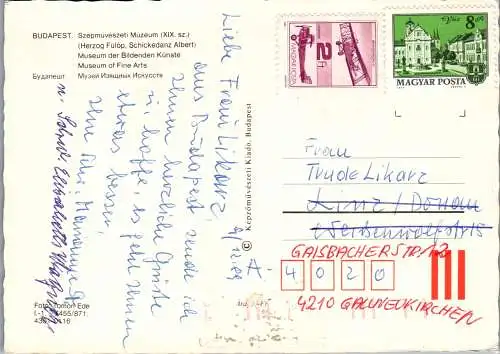 BUDAPEST. Szépművészeti Múzeum (XIX. sz.)
(Herzog Fülöp, Schickedanz Albert)
Museum der Bildenden Künste
Museum of Fine Arts
Будапешт Музей Изящных Искусств
Liebe Frau Likarz,
aus Budapest sende ich
Ihnen herzliche Grüße
u. hoffe, es geht Ihnen
etwas besser,
Ihre
u.
Foto: Tomori Ede
© Képzőművészeti Kiadó, Budapest
2 Ft
MAGYAR POSTA
8 Ft
MAGYAR POSTA
A-
Frau
Trude Likarz
Linz / Donau
GAISBACHERSTR. 12
4020
4210 GALLNEUKIRCHEN